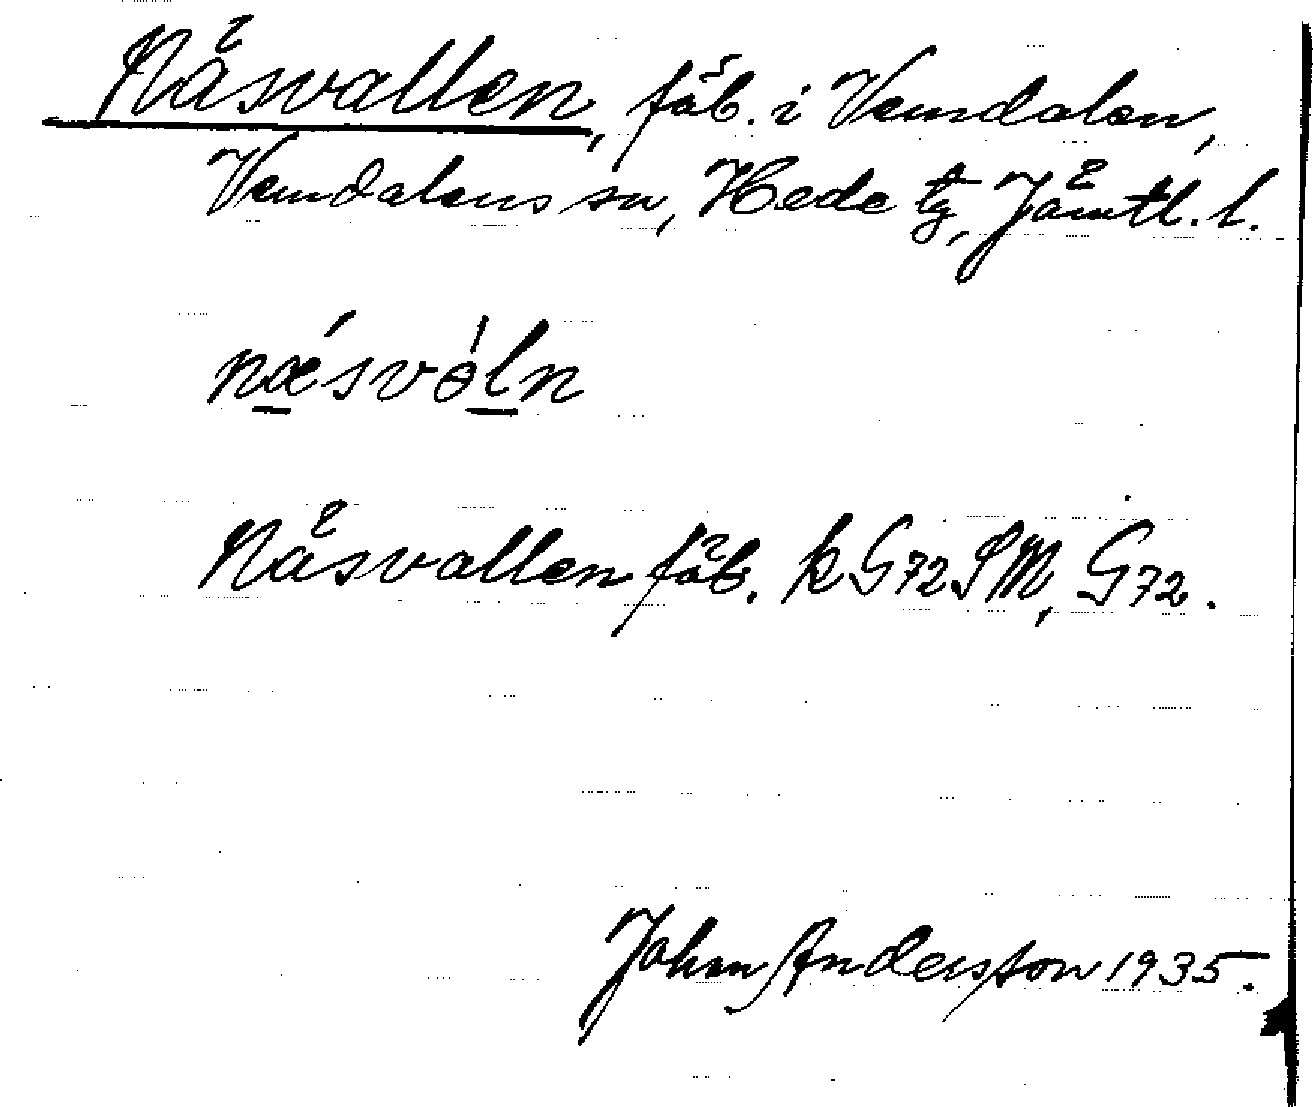 Näsvallen, fäb. i Vemdalen,
Vemdalens sn, Hede tg, Jämtl. l.
nǽ̱svɵ̀ḻn
Näsvallen fäb. k G72SM, G72.
Johan Andersson 1935.